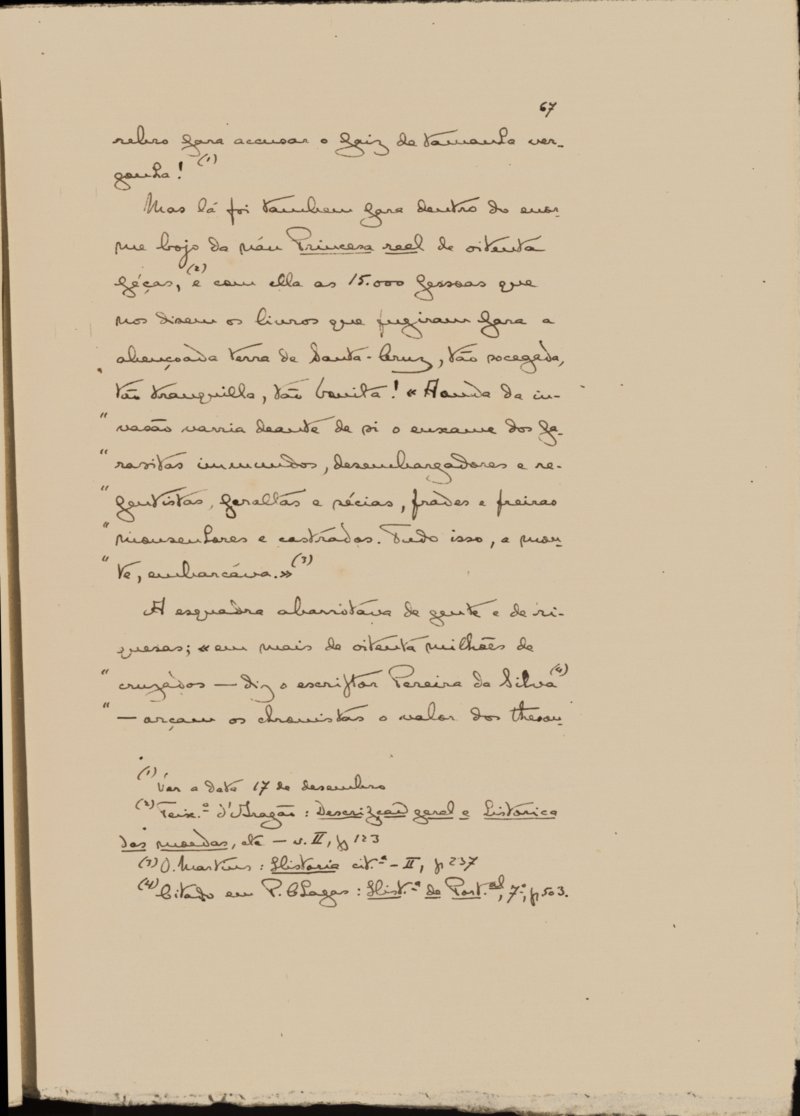 67
rebro para accusar o paiz de tamanha ver-
gonha! (1)
Mas lá foi tambem para dentro do enor-
me bojo da náu Princesa real de oitenta
péças, (2) e com ella as 15.000 pessoas que
nos disem os livros que fugiram para a
abençoada terra de Santa-Cruz, tão socegada,
tão tranquilla, tão bonita! « A onda da in-
" vasão varria deante de si o enxame dos pa-
" rasitas immundos, desembargadores e re-
" pentistas, peraltas e sécias, frades e freiras
" monsenhores e castrados. Tudo isso, a mon-
" te, embarcáva.» (3)
A esquadra abarrotáva de gente e de ri-
quesas; « em mais de oitenta milhões de
" cruzádos — diz o escriptor Pereira da Silva (4)
" — orçam os chronistas o valor dos thesou-
(1) Vêr a data 17 de desembro
(2) Teix.ª d'Aragão: Descripção geral e historica
das moedas, etc — v. II, p 123
(3) O. Martins: Historia cit.ª - II, p 237
(4) Citado em P. Chagas: Hist.ª de Port.al, 7º, p 503.